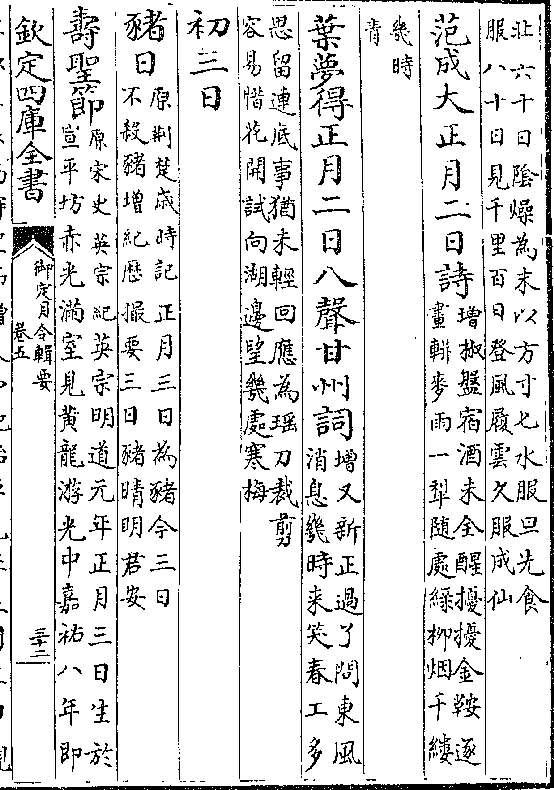 壯六十日陰燥為末以方寸匕水服旦先食
服八十日見千里百日登風履雲久服成仙
范成大正月二日詩增椒盤宿酒未全醒擾擾金鞍逐
畫輧麥雨一犁随處綠柳烟千縷
幾時
青
葉夢得正月二日八聲甘州詞增又新正過了問東風
消息幾時来笑春工多
思留連底事猶未輕回應為瑶刀裁剪
容易惜花開試向湖邊望幾處寒梅
初三日
豬日原荆楚歲時記正月三日為豬今三日
不殺豬增紀歷撮要三日豬晴明君安
壽聖節原宋史英宗紀英宗明道元年正月三日生於
宣平坊赤光滿室見黄龍游光中嘉祐八年即
欽定四庫全書
御定月令輯要
卷五
三十二